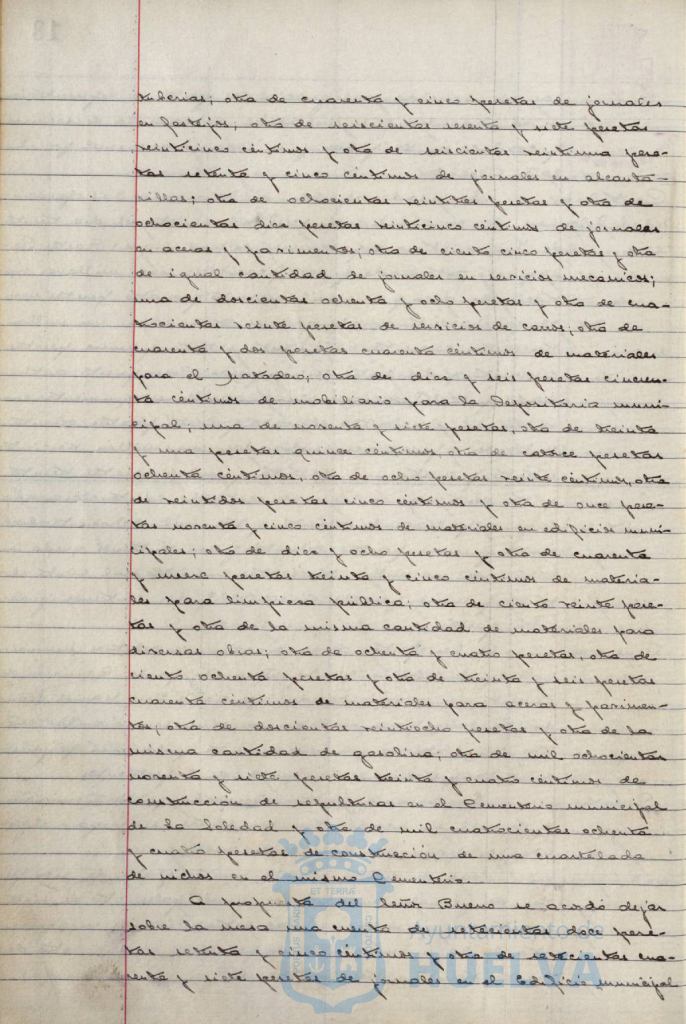 tuberias; otra de cuarenta y cinco pesetas de jornales
en festejos; otra de seiscientas sesenta y siete pesetas
veinticinco céntimos y otra de seiscientas veintiuna pese-
tas setenta y cinco céntimos de jornales en alcanta-
rillas; otra de ochocientas veintitres pesetas y otra de
ochocientas diez pesetas veinticinco céntimos de jornales
en aceras y pavimentos; otra de ciento cinco pesetas y otra
de igual cantidad de jornales en servicios mecanicos;
una de doscientas ochenta y ocho pesetas y otra de cua-
trocientas veinte pesetas de servicios de carros; otra de
cuarenta y dos pesetas cuarenta céntimos de materiales
para el Matadero; otra de diez y seis pesetas cincuen-
ta céntimos de mobiliario para la Depositaria muni-
cipal; una de noventa y siete pesetas, otra de treinta
y una pesetas quince céntimos, otra de catorce pesetas
ochenta céntimos, otra de ocho pesetas veinte céntimos, otra
de veintidos pesetas cinco céntimos y otra de once pese-
tas noventa y cinco céntimos de materiales en edificios muni-
cipales; otra de diez y ocho pesetas y otra de cuarenta
y nueve pesetas treinta y cinco céntimos de materia-
les para limpieza pública; otra de ciento veinte pese-
tas y otra de la misma cantidad de materiales para
diversas obras; otra de ochenta y cuatro pesetas, otra de
ciento ochenta pesetas y otra de treinta y seis pesetas
cuarenta céntimos de materiales para aceras y pavimen-
tos; otra de doscientas veintiocho pesetas y otra de la
misma cantidad de gasolina; otra de mil ochocientas
noventa y siete pesetas treinta y cuatro céntimos de
construcción de sepulturas en el Cementerio municipal
de la Soledad y otra de mil cuatrocientas ochenta
y cuatro pesetas de construcción de una cuartelada
de nichos en el mismo Cementerio.
A propuesta del Señor Bueno se acordó dejar
sobre la mesa una cuenta de setecientas doce pese-
tas setenta y cinco céntimos y otra de setecientas cua-
renta y siete pesetas de jornales en el Edificio municipal
ET TERRÆ
Ayuntamiento de
HUELVA